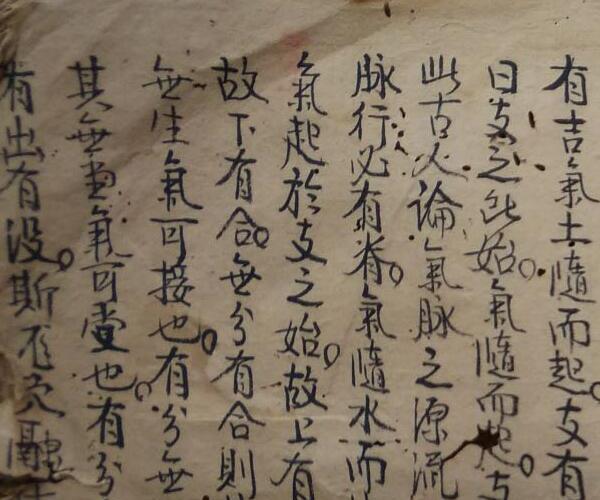 有吉氣土隨而起。支有
日支之此始。氣隨而起古
此古人論氣脉之源流
脉行必有脊。氣隨水而
氣起於支之始。故上有
故下有合。無分有合則
無生氣可接也。有分無
其無氣可也。有分
有出有没。斯